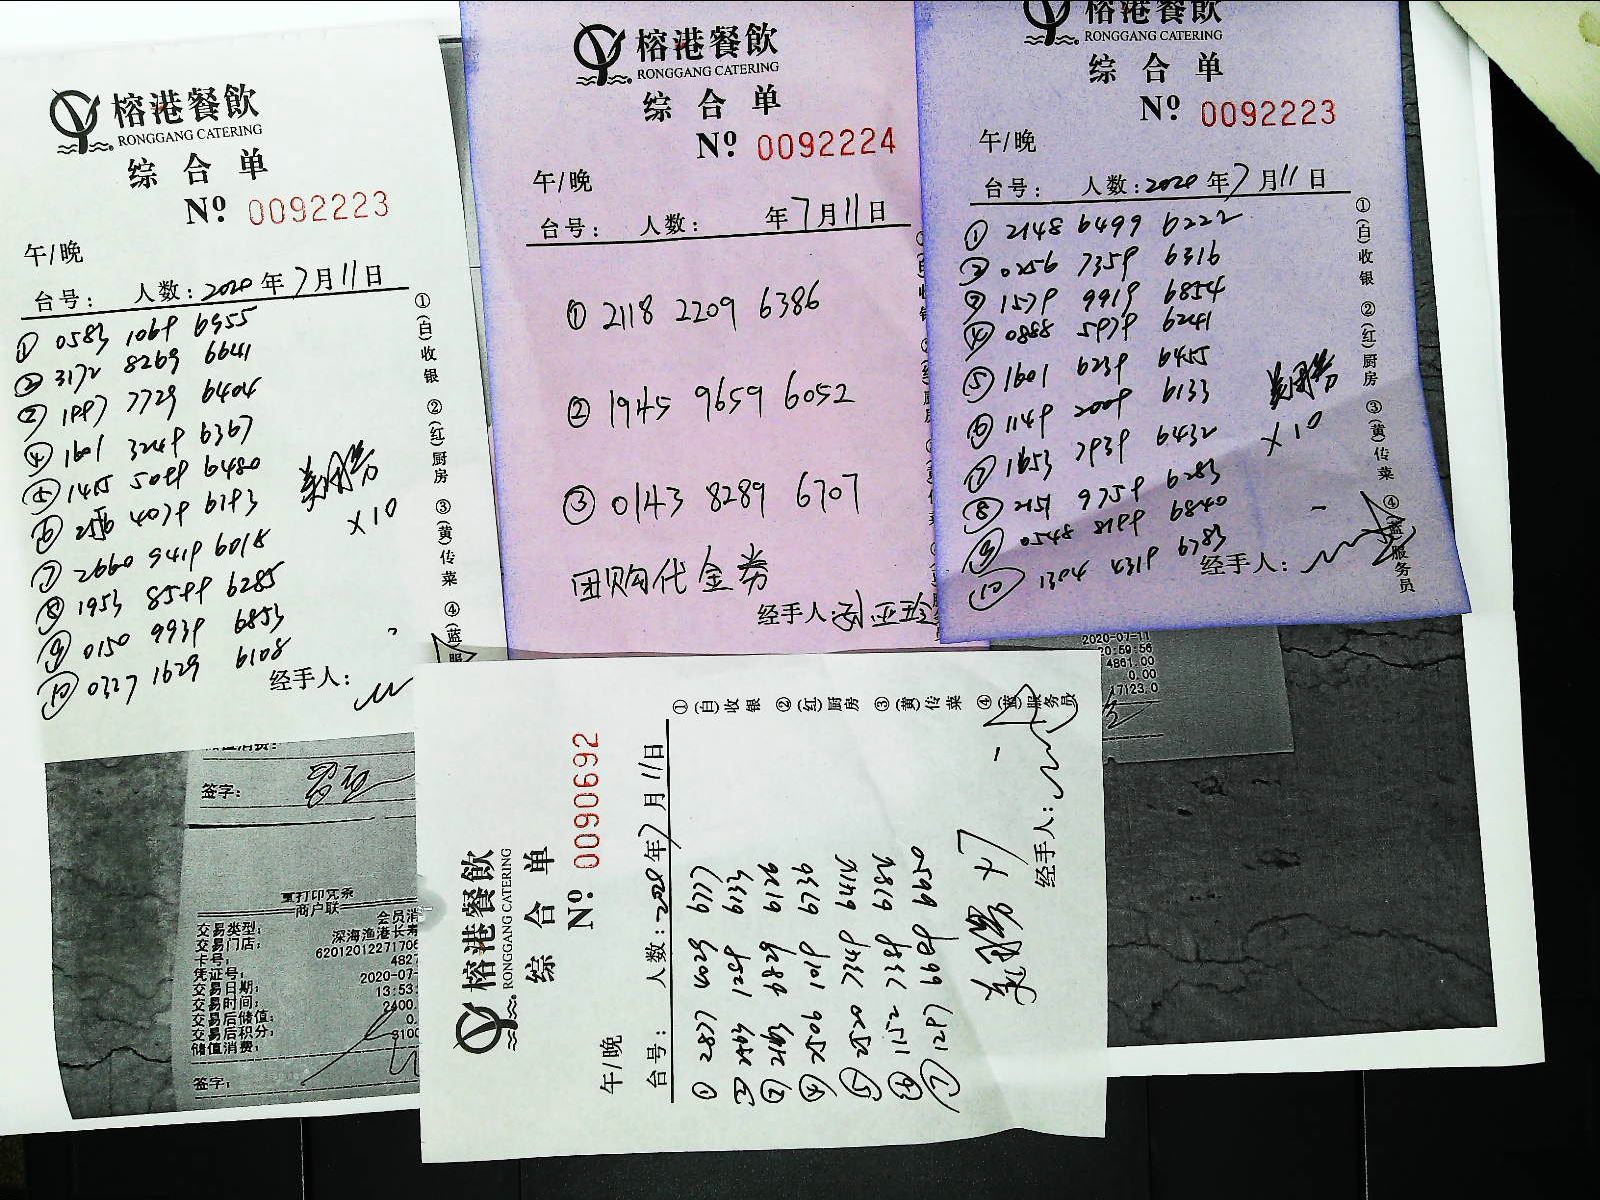 榕港餐飲
RONGGANG CATERING
综合单
Nº 0092223
午/晚
台号： 人数：2020年7月11日
① 0583 1069 6955
② 3172 8269 6641
7729 6404
④ 1601 3249 6367
⑤ 1455 6480
⑦ 2660 9419 6018
⑧ 1953 8599 6285
⑨ 0150 9939 6853
⑩ 0327 1629 6108
美团券
×10
经手人：
①(白)收银 ②(红)厨房 ③(黄)传菜 ④(蓝)服
榕港餐飲
RONGGANG CATERING
综合单
Nº 0092224
午/晚
台号： 人数： 年7月11日
① 2118 2209 6386
② 1945 9659 6052
③ 0143 8289 6707
团购代金券
经手人：孙亚玲
榕港餐飲
RONGGANG CATERING
综合单
Nº 0092223
午/晚
台号： 人数：2020年7月11日
① 2148 6499 6222
② 0256 7359 6316
③ 1579 9919 6854
④ 0888 5979 6241
⑤ 1601 6239 6455
⑥ 1149 2009 6133
⑦ 1653 7939 6432
⑧ 2151 9759 6283
⑨ 0548 8199 6840
⑩ 1304 4319 6783
美团券
×10
经手人：
①(白)收银 ②(红)厨房 ③(黄)传菜 ④(蓝)服务员
2020-07-11
20:59:56
4861.00
0.00
17123.0
签字：
重打印凭条
商户联
交易类型： 会员消
交易门店： 深海渔港长寿
卡号： 62012012271706
凭证号： 4827
交易日期： 2020-07-
交易时间： 13:53:
交易后储值： 2400.
交易后积分： 0.
储值消费： 3100
签字：
榕港餐飲
RONGGANG CATERING
综合单
Nº 0090692
午/晚
台号： 人数：2020年7月11日
① 2877 4029 6777
② 2464 1259 6193
④ 9052 1019 6736
⑤ 0252 7349 6412
⑥ 1152 7389 6182
⑦ 1287 6609 6590
美团券 ×7
经手人：
①(白)收银 ②(红)厨房 ③(黄)传菜 ④(蓝)服务员